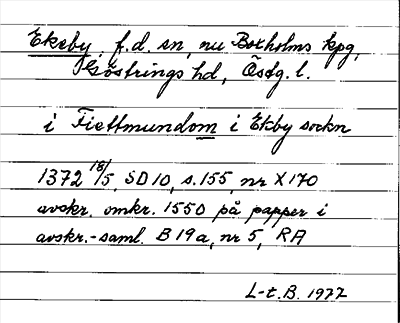 Ekeby, f.d. sn, nu Boxholms kpg,
Göstrings hd, Ösdg. l.
i Fiettmundom i Ekby sockn
1372 18/5, SD 10, s. 155, nr X 170
avskr. omkr. 1550 på papper i
avskr.-saml. B 19 a, nr 5, RA
L-t. B. 1977